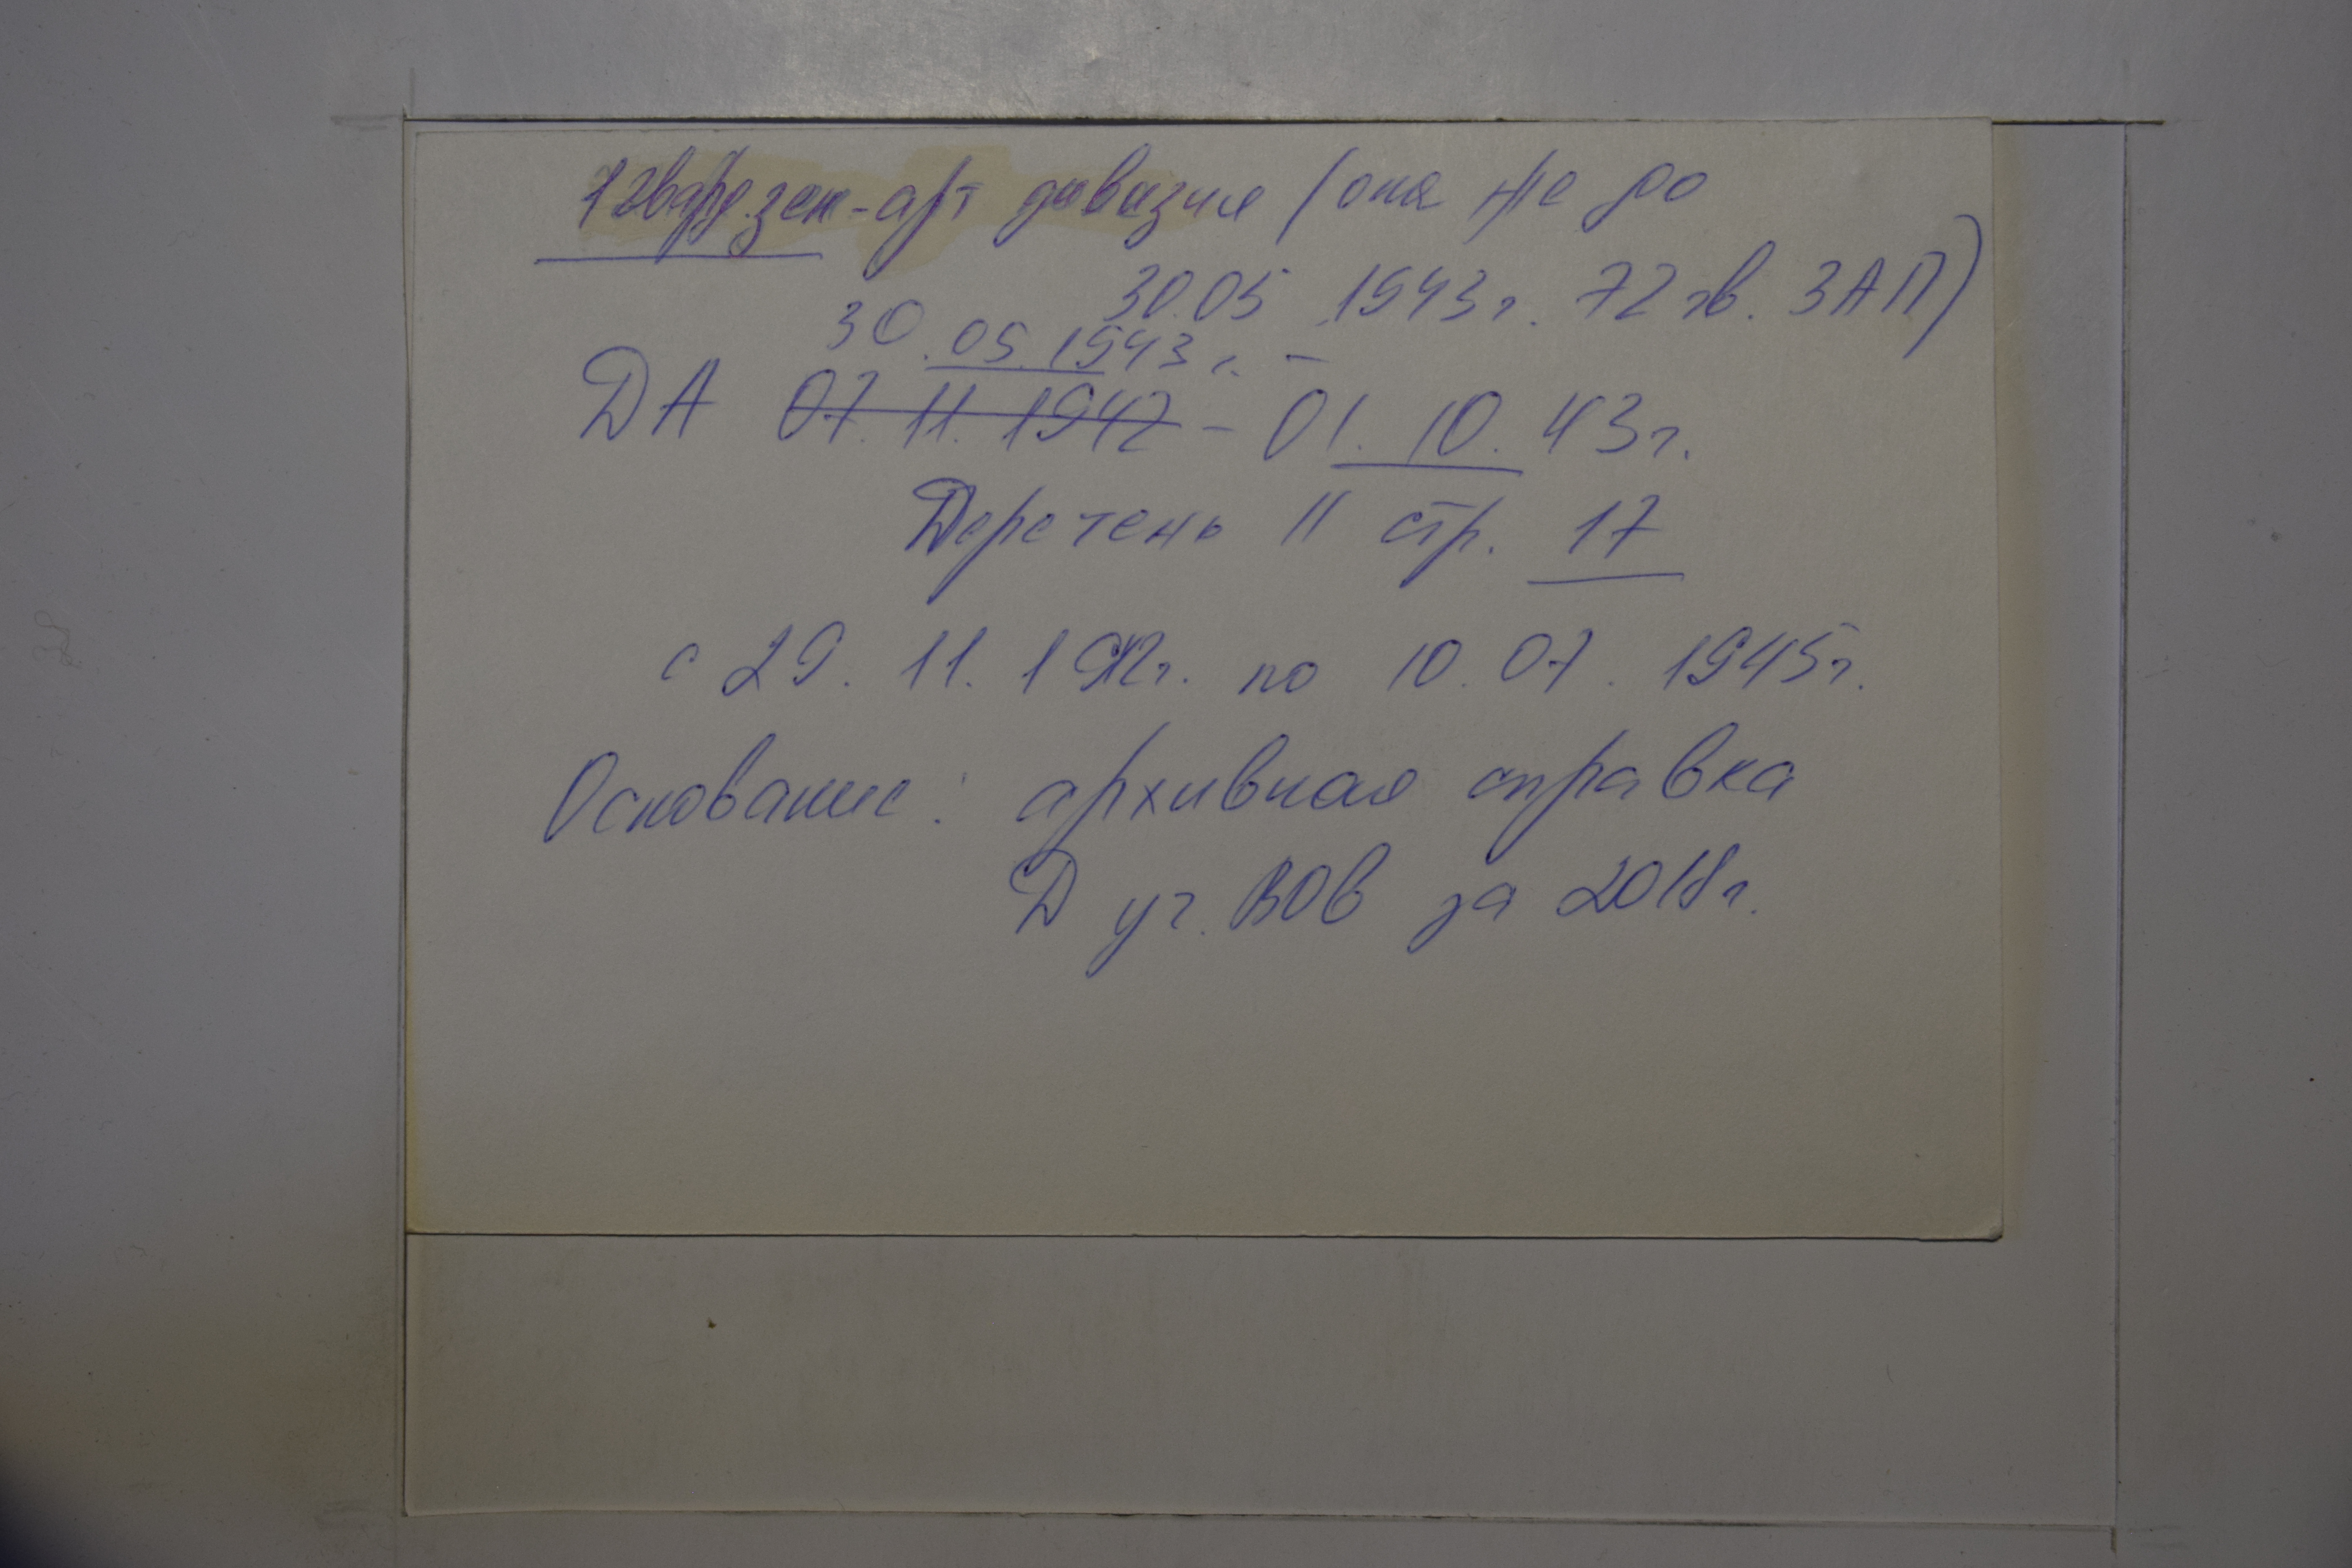 1 гвард. зен-арт дивизия (она же до
30.05.1943г. 72 гв. ЗАП)
30.05.1943г. –
ДА 07.11.1942 – 01.10.43г.
Перечень II стр. 17
с 29.11.1942г. по 10.07.1945г.
Основание: архивная справка
Д уч. ВОВ за 2018г.